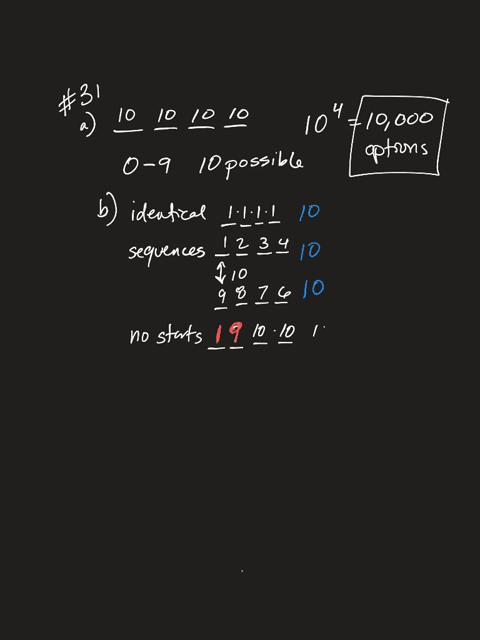 #31
a) 10 10 10 10 10⁴ = 10,000
options
0-9 10 possible
b) identical 1·1·1·1 10
sequences 1 2 3 4 10
10
9 8 7 6 10
no starts 1 9 10·10 1